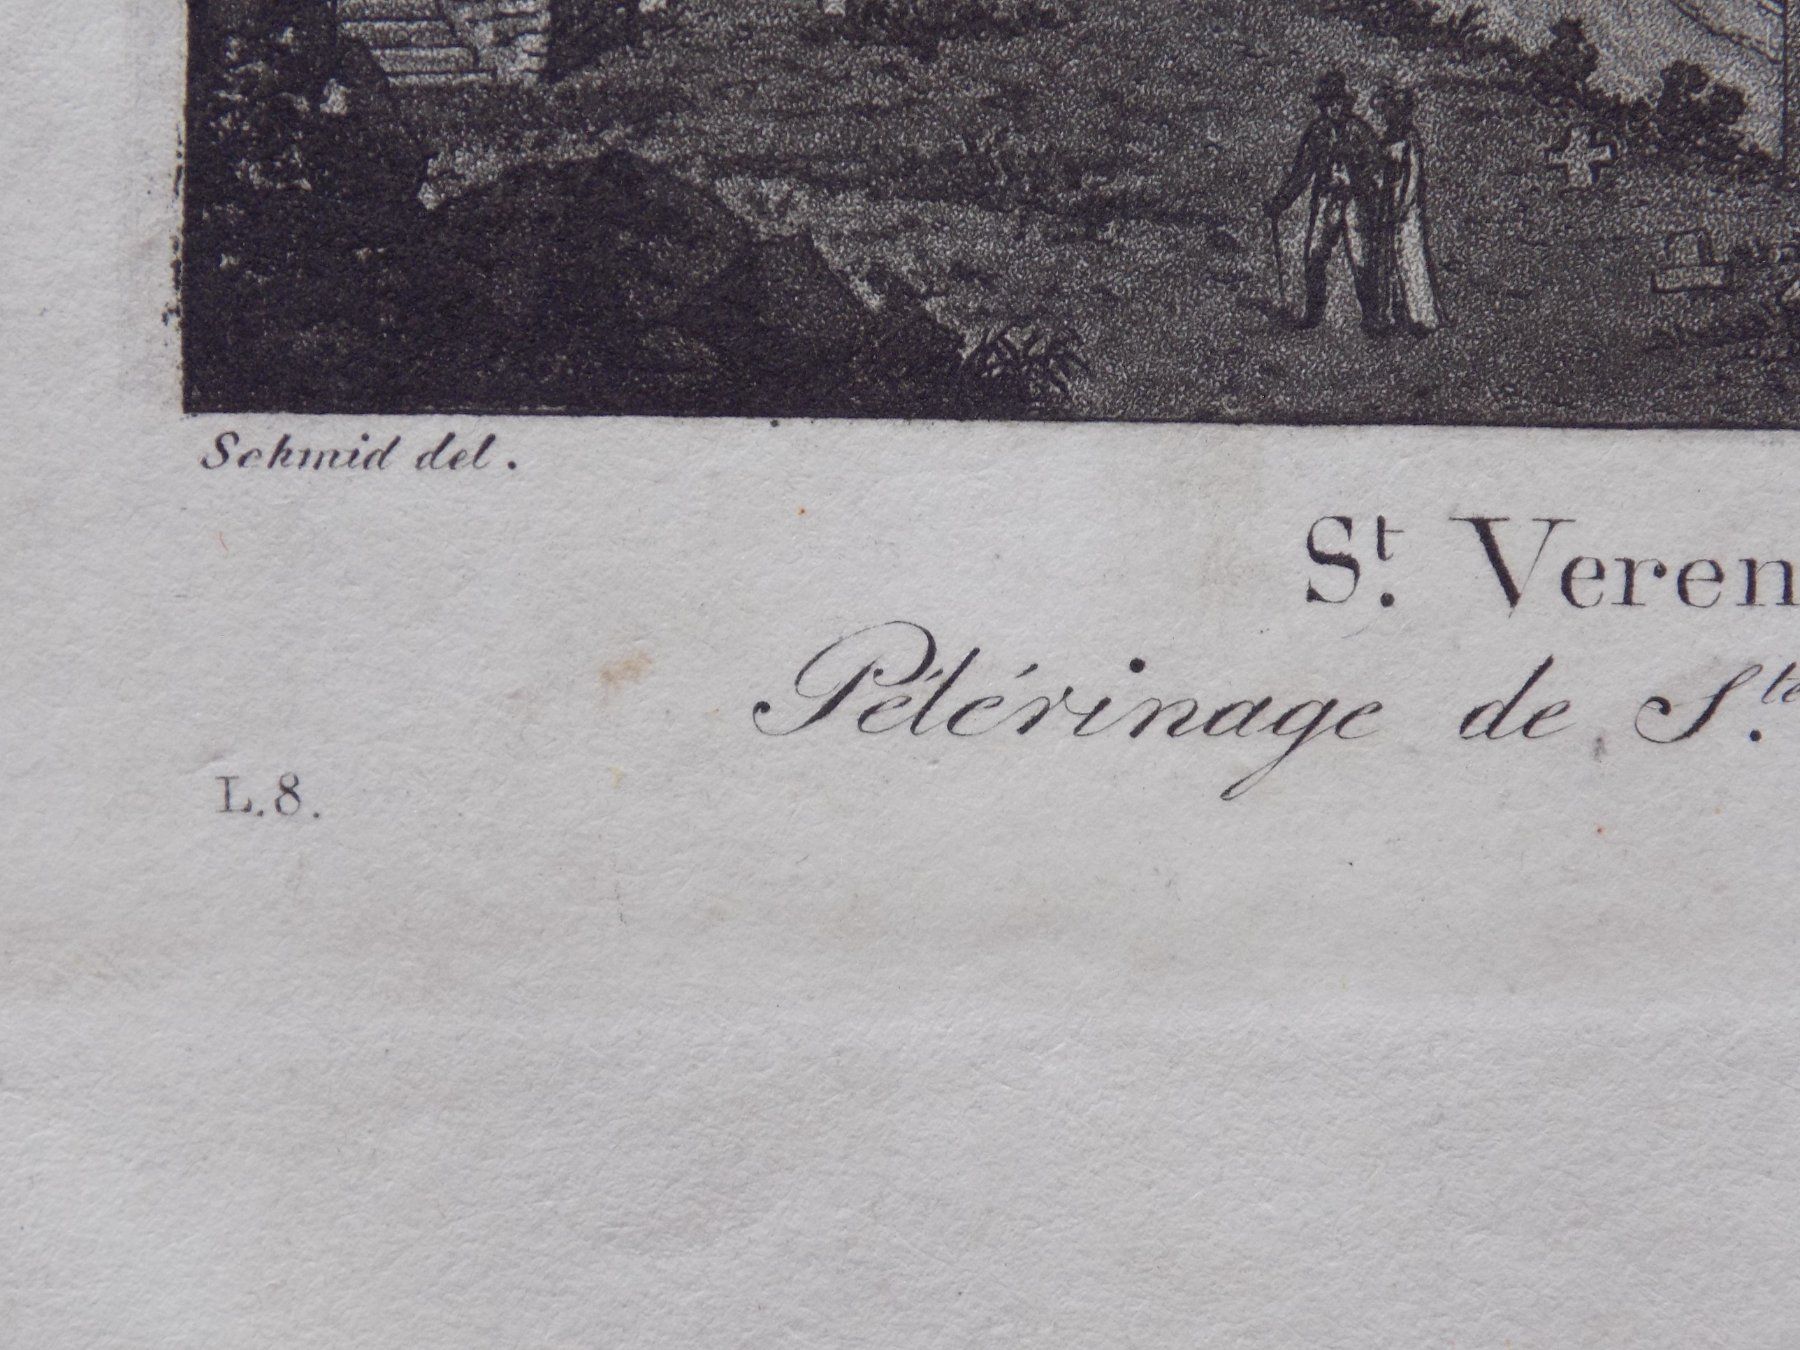 Schmid del.
St. Veren
Pélérinage de S.te
L.8.